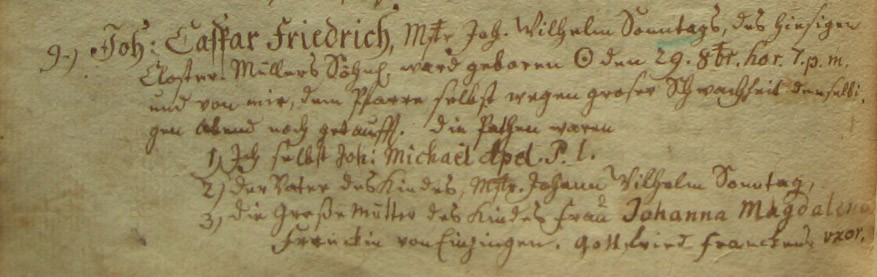 9.) Joh: Casper Friedrich, Mstr. Joh. Wilhelm Sonntags, des hiesigen
Closter-Müllers Söhnl, ward geboren ☉ den 29. 8br. hor. 7. p. m.
und von mir, dem Pfarrer selbst wegen groser Schwachheit denselbi-
gen Abend noch getaufft. Die Pathen waren
1) Ich selbst Joh: Michael Apel. P. l.
2) Der Vater des Kindes, Mstr. Johann Wilhelm Sonntag,
3) Die Große Mutter des Kindes Frau Johanna Magdalena
von Einzingen. Gottfried Franckens uxor.